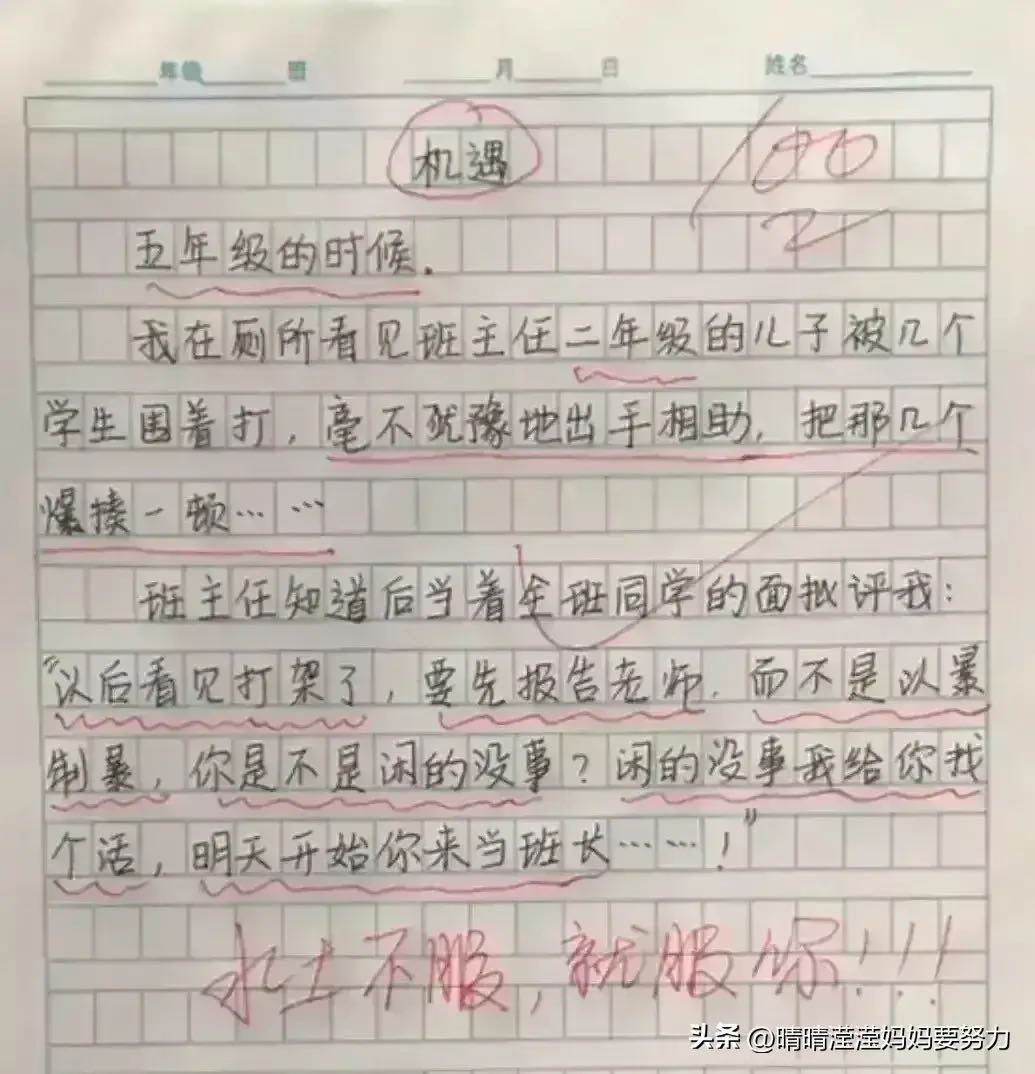 年级 班 月 日 姓名
机遇
100
五年级的时候.
我在厕所看见班主任二年级的儿子被几个
学生围着打,毫不犹豫地出手相助,把那几个
爆揍一顿……
班主任知道后当着全班同学的面批评我:
"以后看见打架了,要先报告老师,而不是以暴
制暴,你是不是闲的没事?闲的没事我给你找
个活,明天开始你来当班长……!"
水土不服,就服你!!!
头条 @晴晴滢滢妈妈要努力